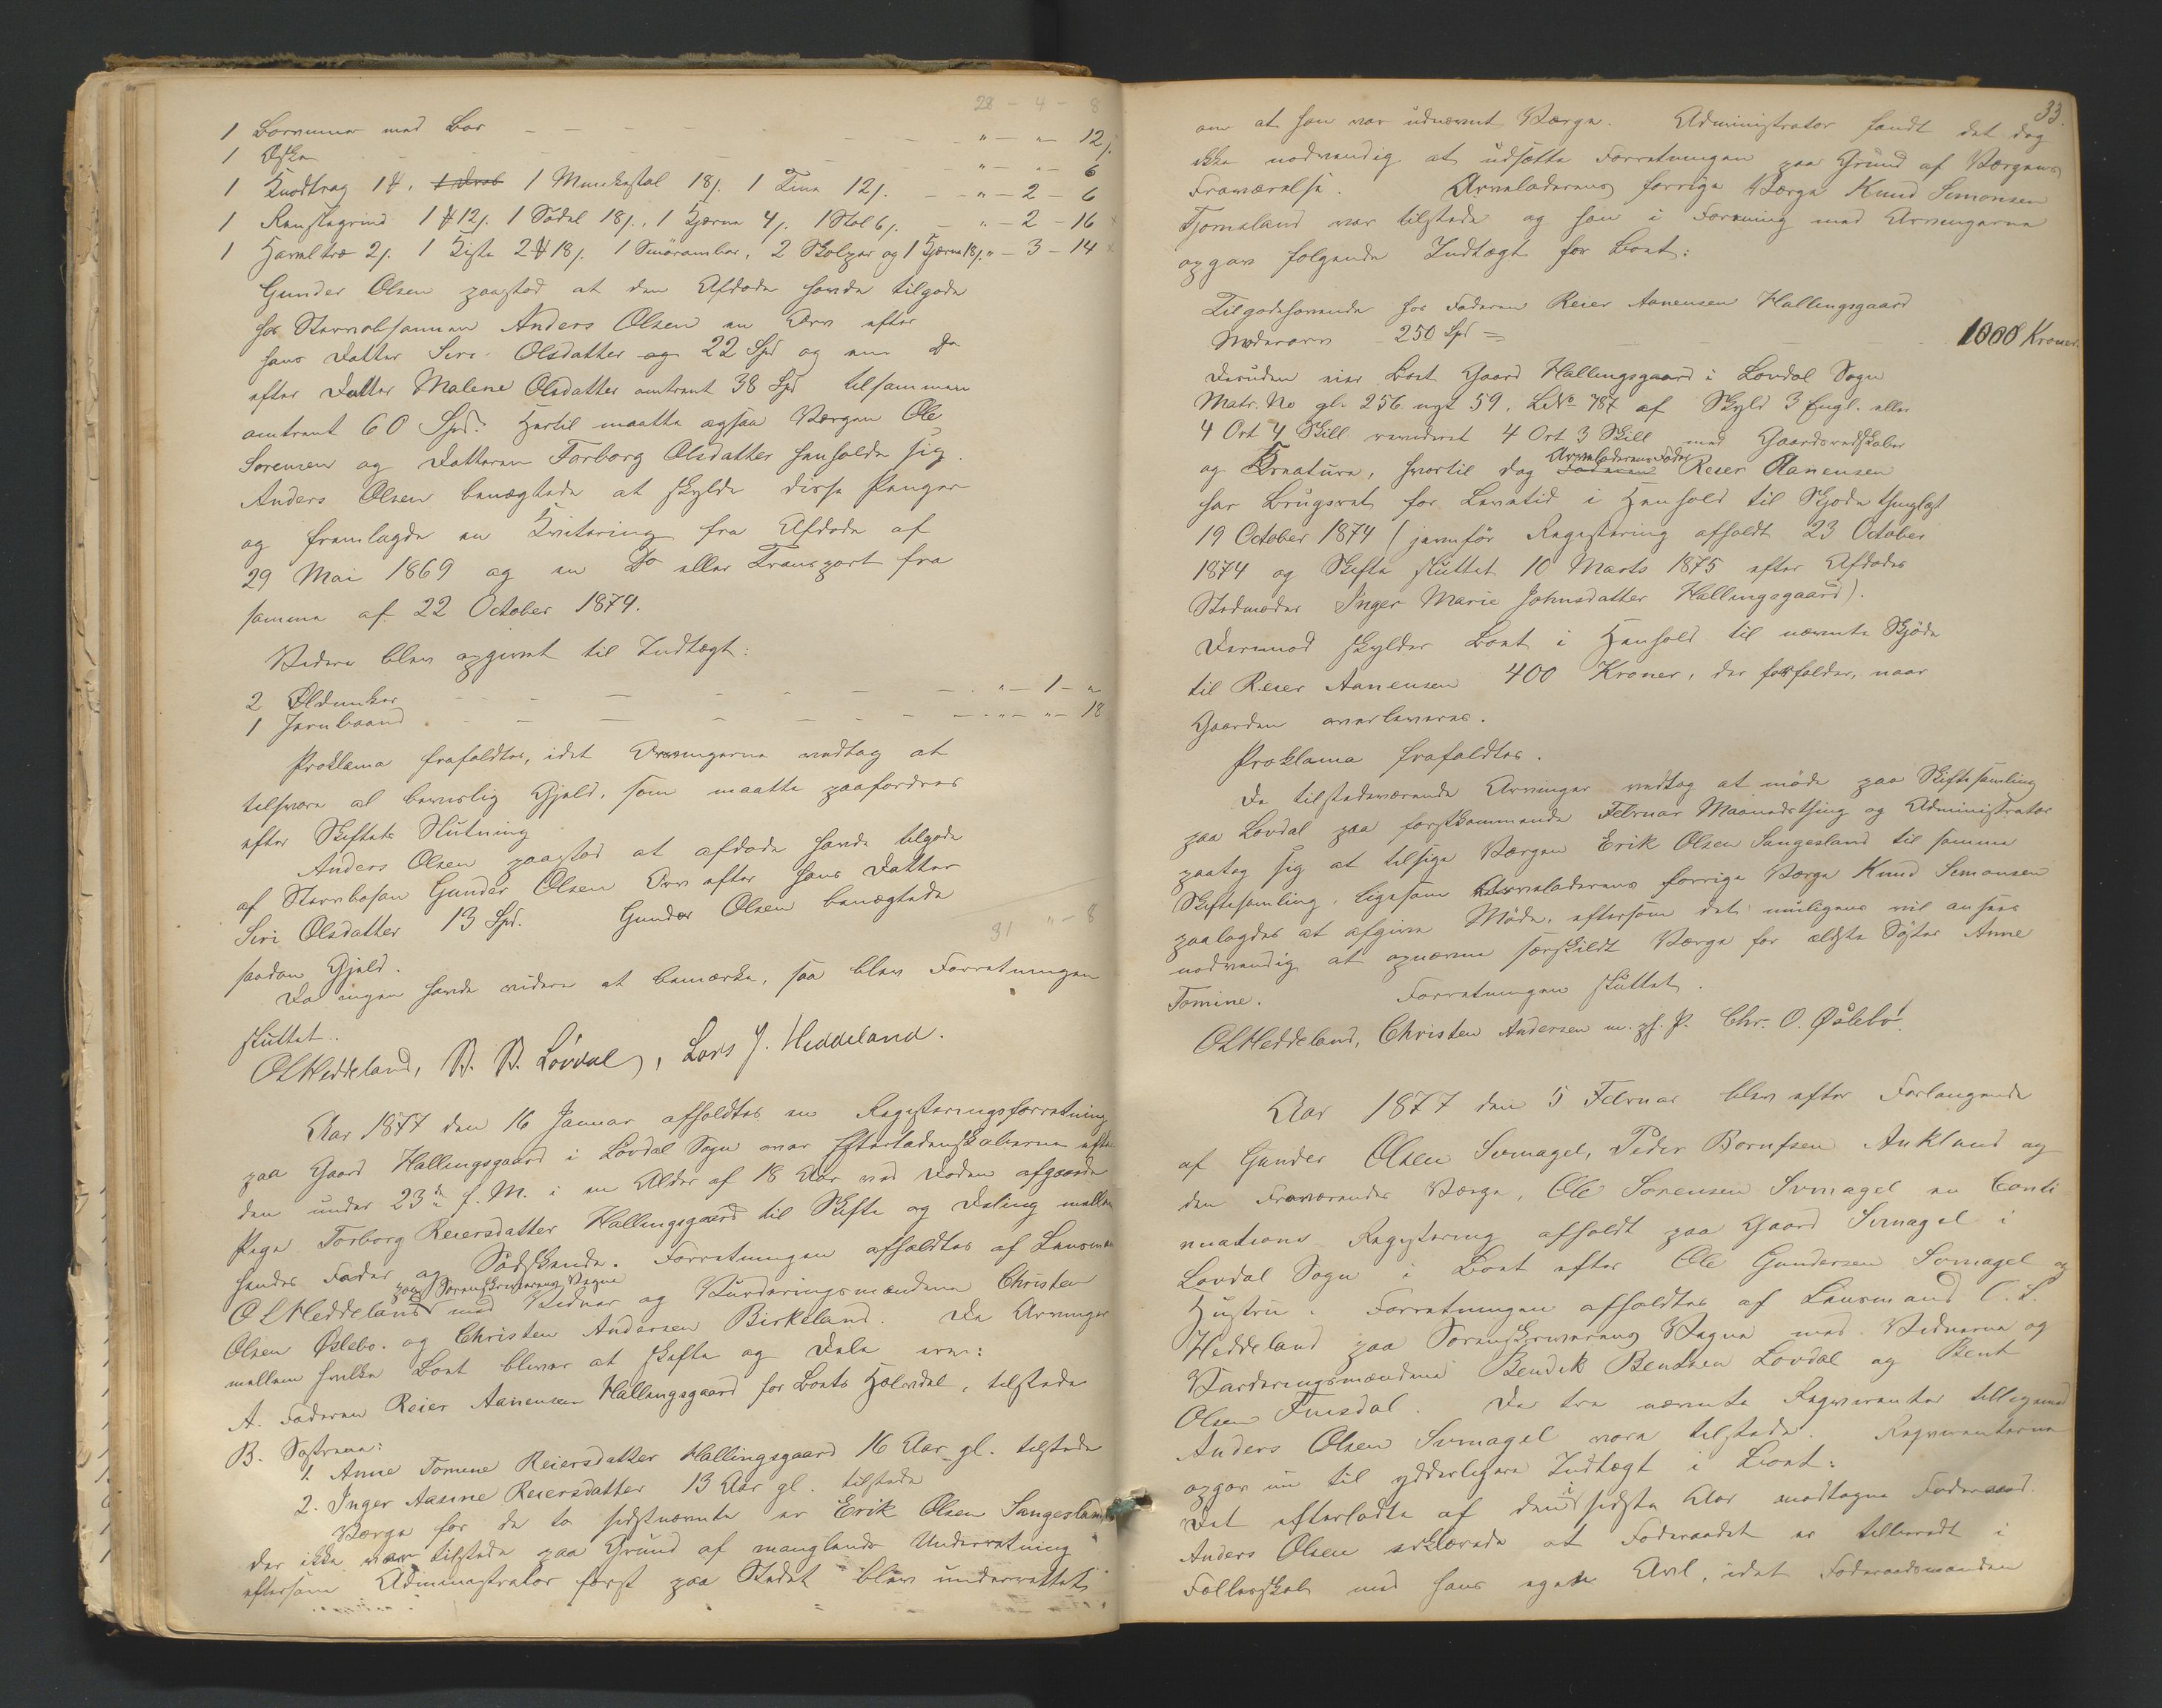 28 - 4 - 8
1 Borvinner med Bor — — — " — " — 12 s.
1 Øske — — — " — " — 6
1 Knodtrag 1 ₰, 1 Munkestol 18 s. 1 Tine 12 s. — " — 2 — 6
1 1 ₰ 12 s. 1 Sadel 18 s., 1 Kjærne 4 s. 1 Stol 6 s. — " — 2 — 16
1 2 s. 1 Kiste 2 ₰ 18 s. 1 Smørambar, 2 og 1 Kjærne 18 s. " — 3 — 14
Gunder Olsen paastod at den Afdøde havde tilgode
hos Stervbosønnen Anders Olsen en Arv efter
hans Datter Siri Olsdatter og 22 Spd og en Do
efter Datter Malene Olsdatter omtrent 38 Spd tilsammen
omtrent 60 Spd. Hertil maatte ogsaa Værgen Ole
Sørensen og Datteren Torborg Olsdatter henholde sig.
Anders Olsen benægtede at skylde disse Penger
og fremlagde en Kvitering fra Afdøde af
29 Mai 1869 og en Do eller Transport fra
samme af 22 October 1874.
Videre blev opgivet til Indtægt:
2 Øldunker — — — " — 1 — "
1 Jernbaand — — — " — " — 18
Proklama frafaldtes, idet Arvingerne vedtog at
tilsvare al beviislig Gjæld, som maatte paafordres
efter Skiftets Slutning
Anders Olsen paastod at afdøde havde tilgode
af Stervbosøn Gunder Olsen Arv efter hans Datter
Siri Olsdatter 13 Spd. Gunder Olsen benægtede
saadan Gjæld.
31 " - 8
Da ingen havde videre at bemærke, saa blev Forretningen
sluttet.
O L Heddeland, B. B. Løvdal, Lars J. Heddeland.
Aar 1877 den 16 Januar afholdtes en Registeringsforretning
paa Gaard Hallingsgaard i Løvdal Sogn over Efterladenskaberne efter
den under 23de f. M. i en Alder af 18 Aar ved Døden afgaaede
Pige Torborg Reiersdatter Hallingsgaard til Skifte og Deling mellem
hendes Fader og Sødskende. Forretningen afholdtes af Lensmand
paa Sorenskriverens Vegne
O L Heddeland med Vidner og Vurderingsmændene Christen
Olsen Øslebø og Christen Andersen Birkeland. De Arvinger
mellem hvilke Boet bliver at skifte og dele ere:
A. Faderen Reier Aanensen Hallingsgaard for Boets Halvdel, tilstede
B. Søstrene:
1. Anne Tomine Reiersdatter Hallingsgaard 16 Aar gl. tilstede
2. Inger Aasine Reiersdatter 13 Aar gl. tilstede
Værge for de to sidstnævnte er Erik Olsen Sangesland
der ikke var tilstede paa Grund af manglende Underretning
eftersom Administrator først paa Stedet blev underrettet
33.
om at han var udnævnt Værge. Administrator fandt det dog
ikke nødvendig at udsætte Forretningen paa Grund af Værgens
Fraværelse. Arveladerens forrige Værge Knud Simonsen
Tjomsland var tilstede og han i Forening med Arvingerne
opgav følgende Indtægt for Boet:
Tilgodehavende hos Faderen Reier Aanensen Hallingsgaard
Mødrearv 250 Spd = — — — 1000 Kroner.
Desuden eier Boet Gaard Hallingsgaard i Løvdal Sogn
Matr. No gl. 256 nyt 59, LNo 787 af Skyld 3 Engl. eller
4 Ort 4 Skill revideret 4 Ort 3 Skill med Gaardsredskaber
Arveladerens Fader
og Kreature, hvortil dog Faderen Reier Aanensen
har Brugsret for Levetid i Henhold til Skjøde thinglyst
19 October 1874 (jevnfør Registering afholdt 23 October
1874 og Skifte sluttet 10 Marts 1875 efter Afdødes
Stedmoder Inger Marie Johnsdatter Hallingsgaard).
Derimod skylder Boet i Henhold til nævnte Skjøde
til Reier Aanensen 400 Kroner, der forfalder, naar
Gaarden overleveres.
Proklama frafaldtes.
De tilstedeværende Arvinger vedtog at møde paa Skiftesamling
paa Løvdal paa førstkommende Februar Maanedsthing og Administrator
paatog sig at tilsige Værgen Erik Olsen Sangesland til samme
Skiftesamling, ligesom Arveladerens forrige Værge Knud Simonsen
paalagdes at afgive Møde, eftersom det muligens vil ansees
nødvendig at opnævne særskildt Værge for ældste Søster Anne
Tomine. Forretningen sluttet.
O L Heddeland, Christen Andersen m. p. P. Chr. O. Øslebø.
Aar 1877 den 5 Februar blev efter Forlangende
af Gunder Olsen Svinagel, Peder Aukland og
den Fraværendes Værge, Ole Sørensen Svinagel en Conti
nuations Registering afholdt paa Gaard Svinagel i
Løvdal Sogn i Boet efter Ole Gundersen Svinagel og
Hustru. Forretningen afholdtes af Lensmand O. L.
Heddeland paa Sorenskriverens Vegne med Vidnerne og
Vurderingsmændene Bendik Bentsen Løvdal og Bent
Olsen Finsdal. De tre nævnte Requirenter tilligemed
Anders Olsen Svinagel vare tilstede. Requirenterne
opgav nu til yderligere Indtægt i Boet:
Det efterladte af den i sidste Aar modtagne Føderaad.
Anders Olsen erklærede at Føderaadet er tilberedt i
Fællesskab med hans egen Avl, idet Føderaadsmanden